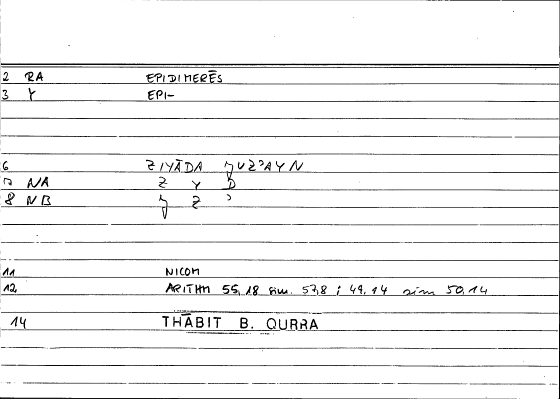 2 RA EPIDIMERĒS
3 Y EPI-
6 ZIYĀDA ǦUZʾAYN
7 NA Z Y D
8 NB Ǧ Z ʾ
11 NICOM
12 ARITHM 55,18 sim. 57,8 ; 49,14 sim 50,14
14 THĀBIT B. QURRA